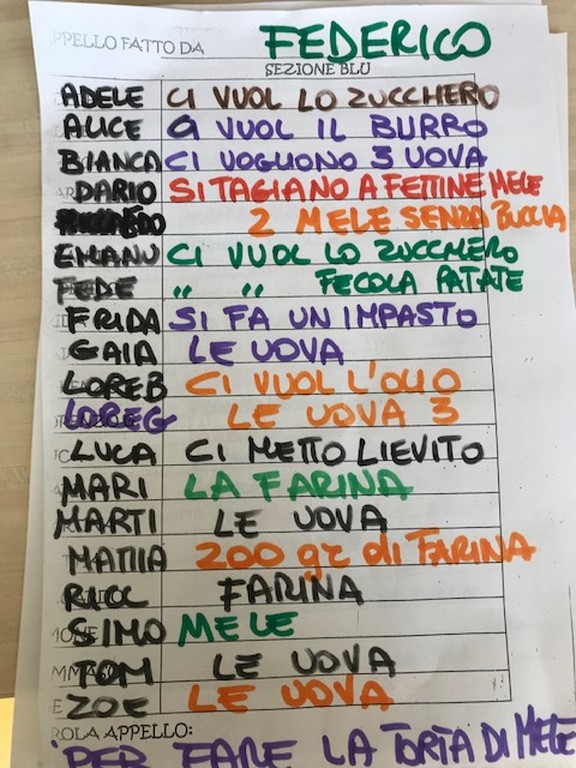 PPELLO FATTO DA FEDERICO
SEZIONE BLU
ADELE CI VUOL LO ZUCCHERO
ALICE CI VUOL IL BURRO
BIANCA CI VOGLIONO 3 UOVA
DARIO SI TAGIANO A FETTINE MELE
EDO 2 MELE SENZA BUCCIA
EMANU CI VUOL LO ZUCCHERO
FEDE " " FECOLA PATATE
FRIDA SI FA UN IMPASTO
GAIA LE UOVA
LOREB CI VUOL L'OLIO
LOREG LE UOVA 3
LUCA CI METTO LIEVITO
MARI LA FARINA
MARTI LE UOVA
MATTIA 200 gr di FARINA
RICC FARINA
SIMO MELE
TOM LE UOVA
ZOE LE UOVA
ROLA APPELLO:
"PER FARE LA TORTA DI MELE